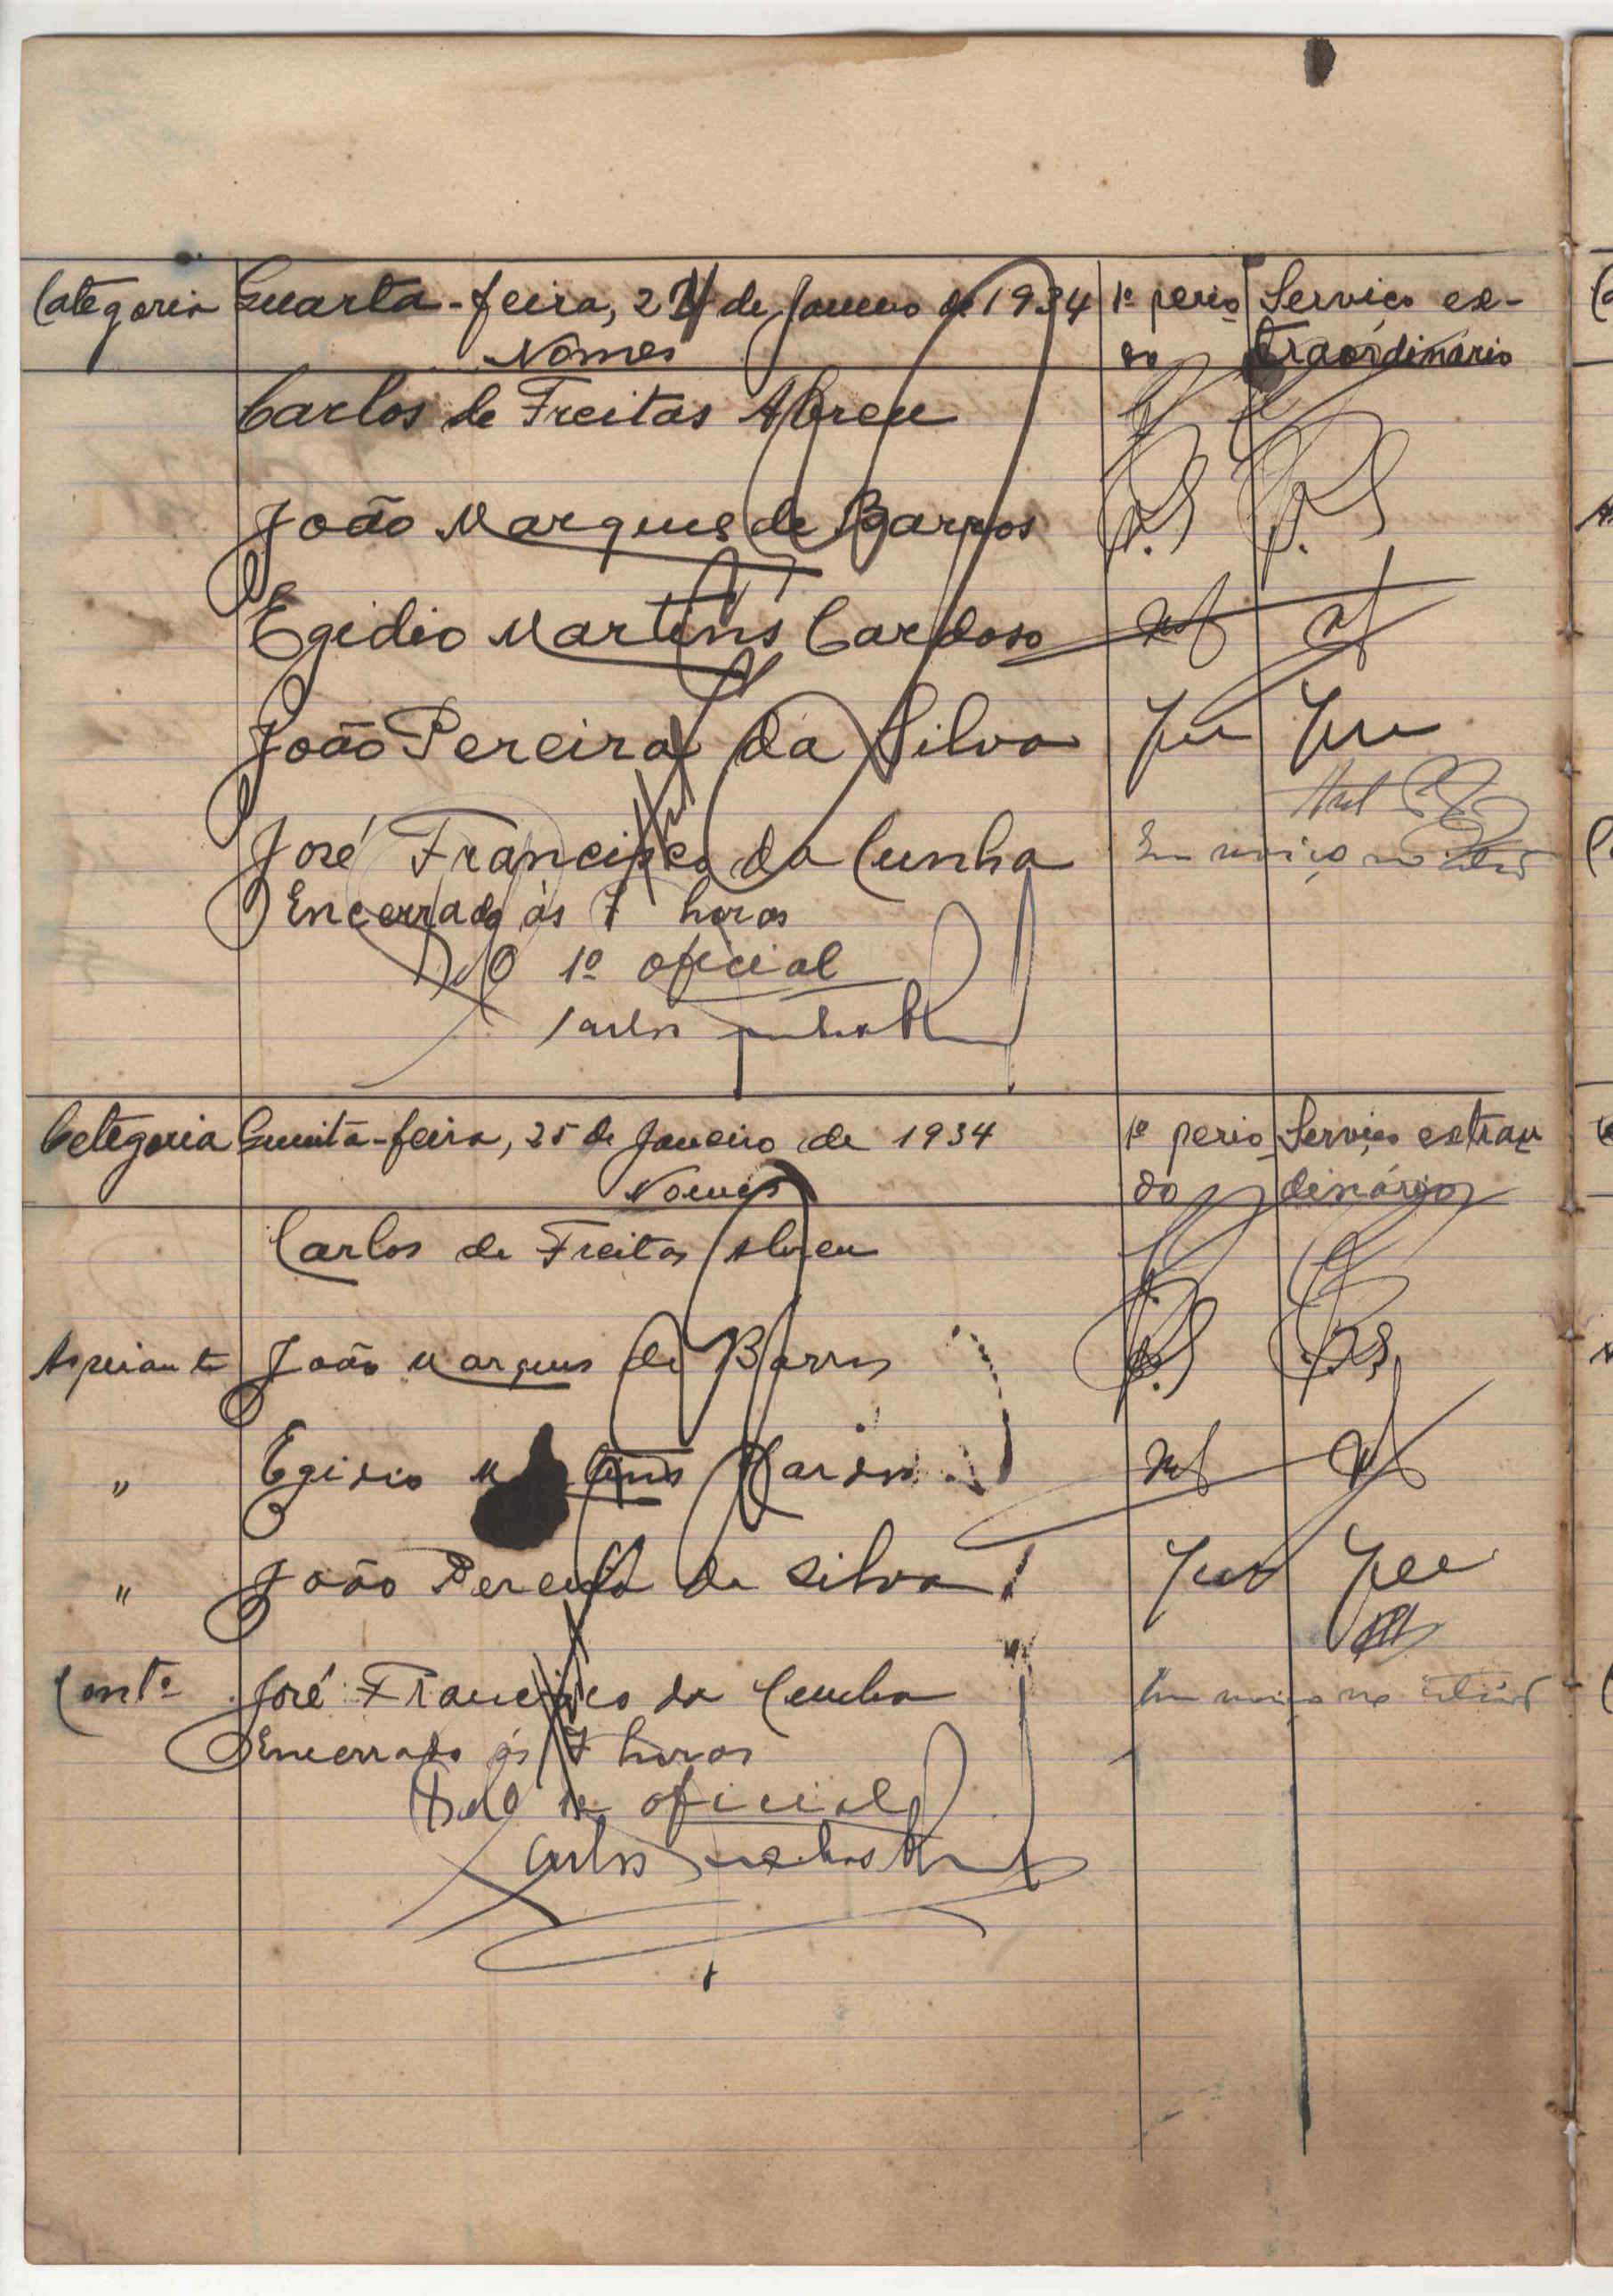 Categoria Quarta-feira, 24 de Janeiro de 1934 1º perio Serviço ex-
Nomes do traórdinario
Carlos de Freitas Abreu
João Marques de Barros
Egidio Martins Cardoso
João Pereira da Silva
José Francisco da Cunha Em serviço no
Encerrado ás 7 horas
O 1º oficial
Carlos
Categoria Quinta-feira, 25 de Janeiro de 1934 1º perio Serviço extraor
Nomes do dinário
Carlos de Freitas Abreu
Aspirante João Marques de Barros
" Egidio Martins Cardoso
" João Pereira da Silva
Contº José Francisco da Cunha Em serviço no
Encerrado ás 7 horas
O 1º oficial
Carlos